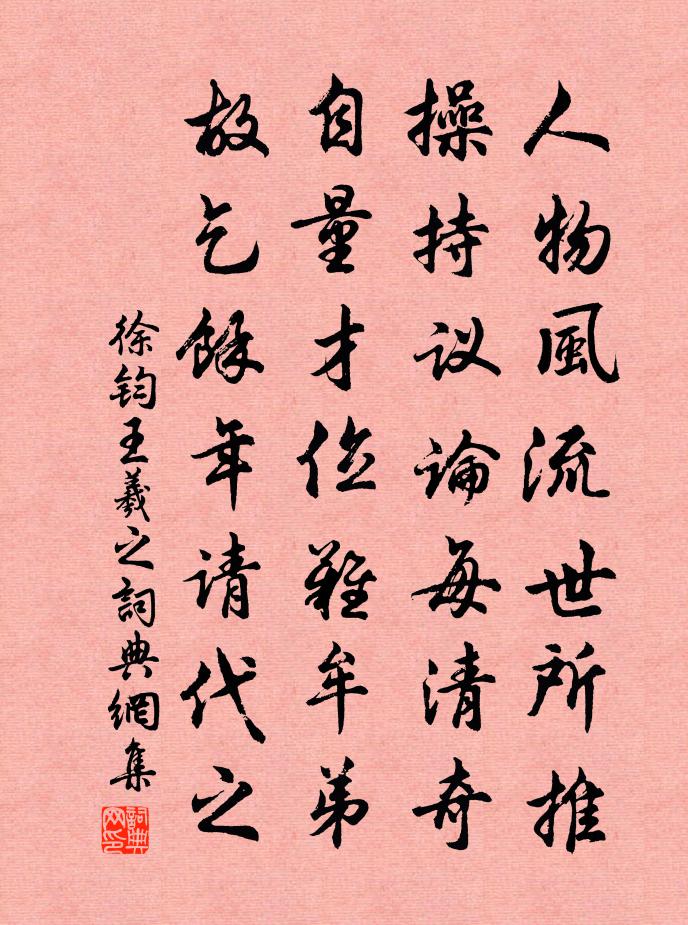 人物風流世所推
操持议論每清奇
自量才位難牟弟
故乞餘年请代之
徐鈞王羲之詞典網集
詞典网印